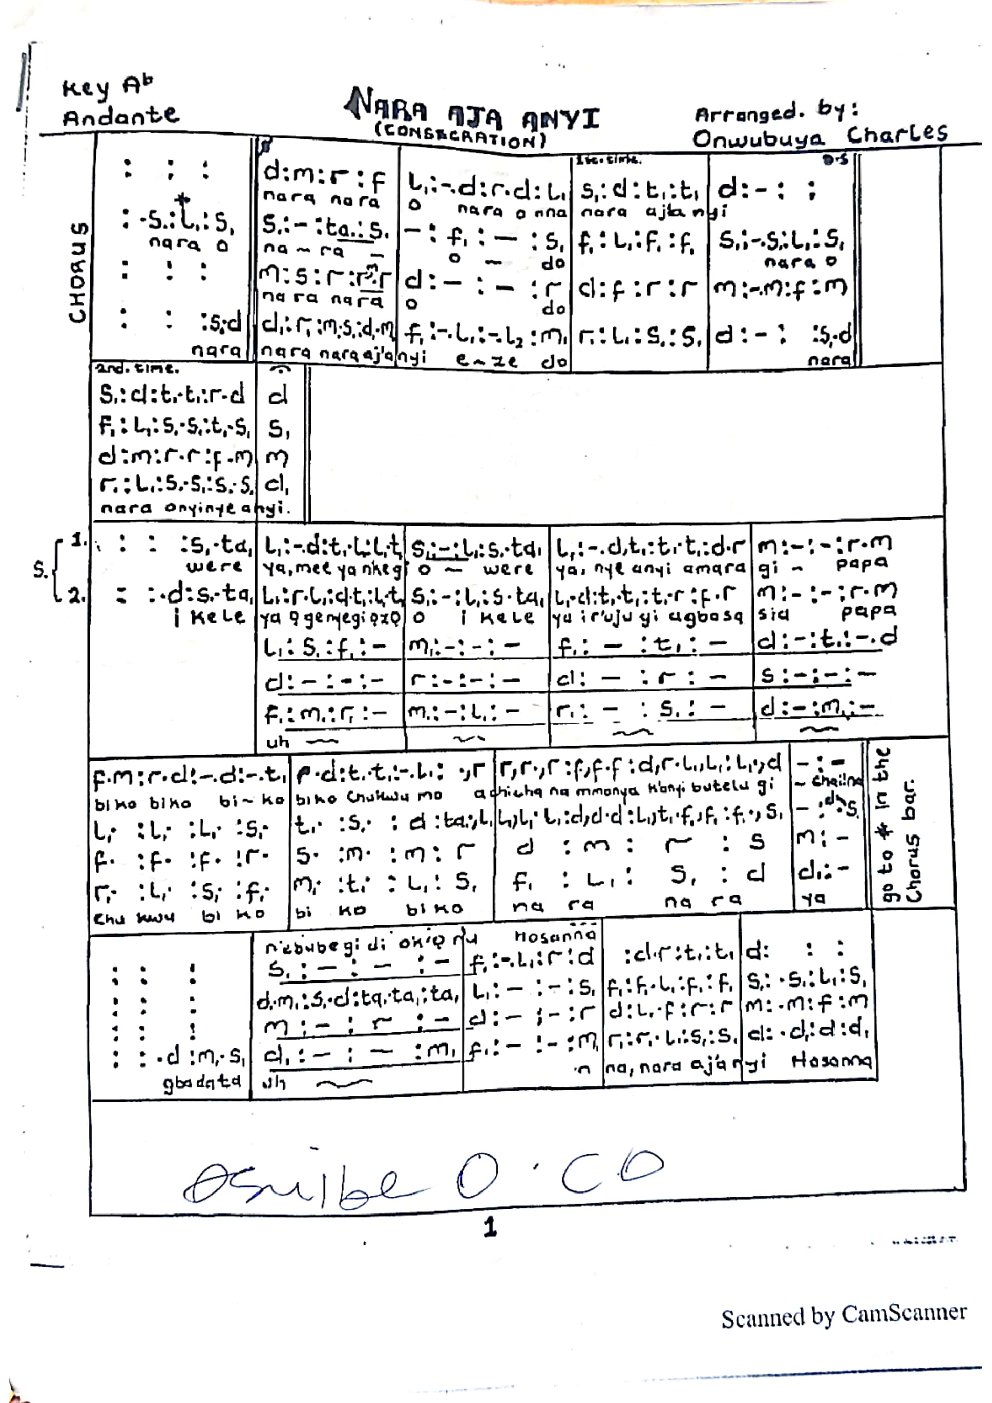 Key Ab
Andante
NARA AJA ANYI
(CONSECRATION)
Arranged. by:
Onwubuya Charles
CHORUS
1st. time. D.S
: : : d:m:r:f L,:-.d:r.d:L, s,:d:t,:t, d:-: :
nara nara o nara o nna nara aja'nyi
*
: -S,:L,:S, S,:-:ta,:S, -:f,:-:s, f,:L,:f,:f, S,:-.S,:L,:S,
nara o na-ra - o - do nara o
: : : m:s:r:r d:-:-:r d:f:r:r m:-.m:f:m
nara nara o do
: : :s,.d d,:r,:m,.s,:d.m f,:-.L,:-.L2:m, r,:L,:S,:S, d:-: :S,.d
nara nara nara aja'nyi e-ze do nara
2nd. time.
S,:d:t,.t,:r.d d
f,:L,:S,.S,:t,.S, S,
d:m:r.r:f.m m
r,:L,:S,.S,:S,.S, d,
nara onyinye anyi.
S.
1. : : :s,.ta, L,:-.d:t,.L,:L,.t, S,:-:L,:s,.ta, L,:-.d,t,:t,.t,:d.r m:-:-:r.m
were ya, mee ya nke gi o ~ were ya, nye anyi amara gi ~ papa
2. : :.d:s,.ta, L,:r.L,:d.t,:L,.t, S,:-:L,:s,.ta, L,.d:t,.t,:t,.r:f.r m:-:-:r.m
i kele ya o genyegi ozo o i kele ya iruju gi agbasa sia papa
L,:S,:f,:- m,:-:-:- f,:-:t,:- d:-:t,:-.d
d:-:-:- r:-:-:- d:-:r:- s:-:-:-
f,:m,:r,:- m,:-:L,:- r,:-:S,:- d:-:m,:-
uh
f.m:r.d:-.d:-.t, f.d:t,.t,:-.L,: .,r r,r.,r:f,f.f:d,r.L,L,:L,.,d -:-
biko biko bi-ko biko Chukwu mo achicha na mmanya kanyi butelu gi
L,. :L,. :L,. :S,.
f. :f. :f. :r. S. :m. :m:r d :m: r :S m:-
r,. :L,. :S,. :f,. m,. :t,. :L,:S, f, :L,: S, :d d,:-
Chu kwu bi ko bi ko biko na ra na ra ya
go to * in the
Chorus bar.
n'ebube gi di okiro nu Hosanna
: : : s,:-:-:- f,:-.L,:r:d :d.r:t,:t, d: : :
: : : d.m,:S,.d:ta,.ta,:ta, L,:-:-:S, f,:f,.L,:f,:f, S,:.S,:L,:S,
: : : m:-:r:- d:-:-:r d:L,.f:r:r m:.m:f:m
: :.d:m,.s, d,:-:-:m, f,:-:-:m, r,:r,.L,:S,:S, d:.d,:d:d,
gbadata uh na, nara aja'nyi Hosanna
1
Scanned by CamScanner